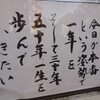 今日が本番
という姿勢で
一年を
そして三年
五十年一生を
歩んで
いきたい